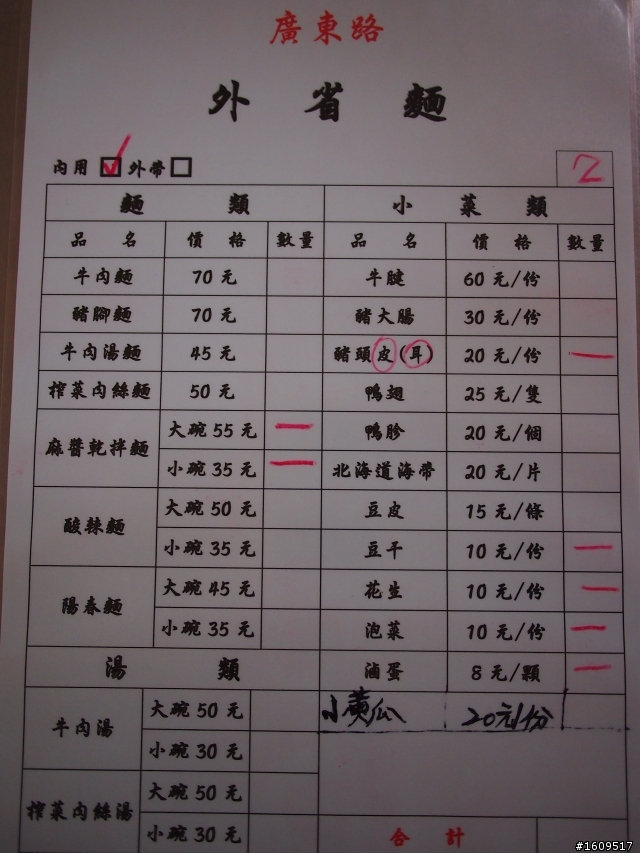 廣東路
外省麵
內用 外帶 2
麵類 小菜類
品名 價格 數量 品名 價格 數量
牛肉麵 70元 牛腱 60元/份
豬腳麵 70元 豬大腸 30元/份
牛肉湯麵 45元 豬頭皮(耳) 20元/份 一
榨菜肉絲麵 50元 鴨翅 25元/隻
麻醬乾拌麵 大碗55元 一 鴨胗 20元/個
小碗35元 一 北海道海帶 20元/片
酸辣麵 大碗50元 豆皮 15元/條
小碗35元 豆干 10元/份 一
陽春麵 大碗45元 花生 10元/份 一
小碗35元 泡菜 10元/份 一
湯類 滷蛋 8元/顆 一
牛肉湯 大碗50元 小黃瓜 20元/份
小碗30元
榨菜肉絲湯 大碗50元
小碗30元 合計
#1609517